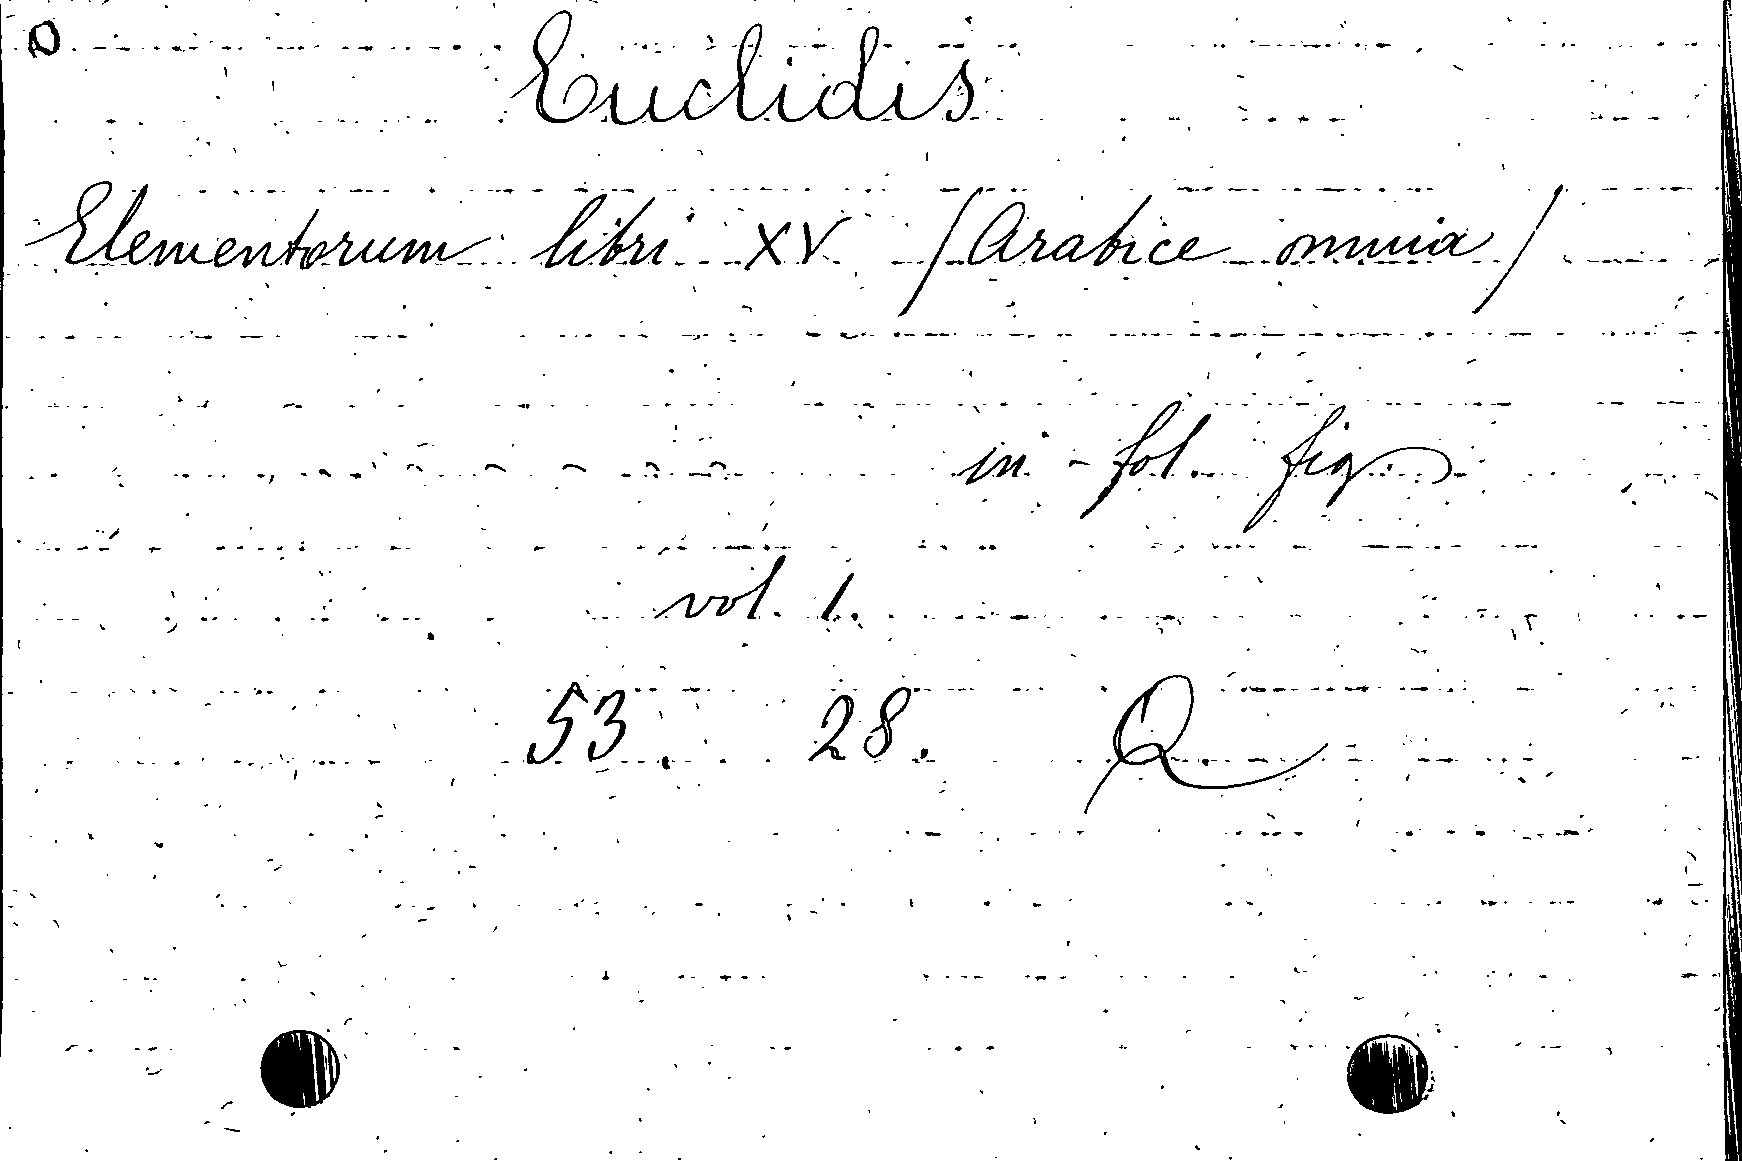 Euclidis
Elementorum libri XV (Arabice omnia)
in-fol. fig.
vol. 1.
53. 28. Q